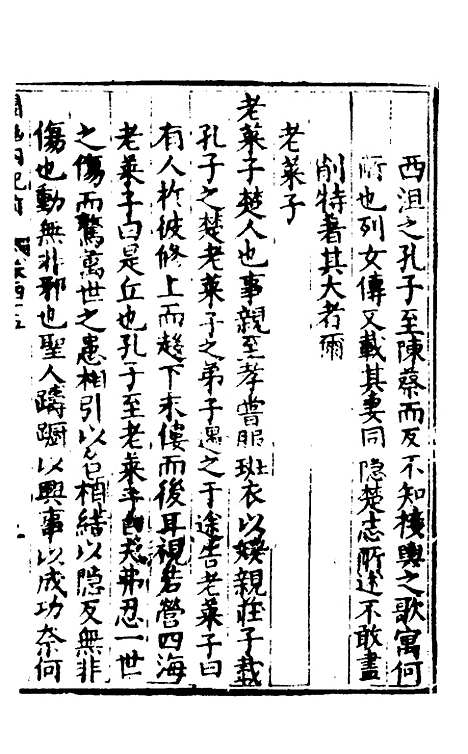 西沮之孔子至陳蔡而反不知接輿之歌寓何
所也列女傳又載其妻同隐楚志所述不敢盡
削特著其大者爾
老萊子
老萊子楚人也事親至孝嘗服斑衣以娱親莊子載
孔子之楚老萊子之弟子遇之于途告老萊子曰
有人於彼修上而趍下末僂而後耳視若營四海
老萊子曰是丘也孔子至老萊子曰夫弗忍一世
之傷而驁萬世之患相引以名相結以隐反無非
傷也動無非邪也聖人躊躇以興事以成功奈何